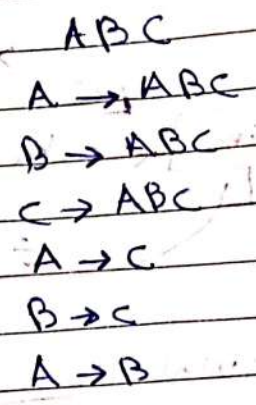 ABC
A → ABC
B → ABC
C → ABC
A → C
B → C
A → B